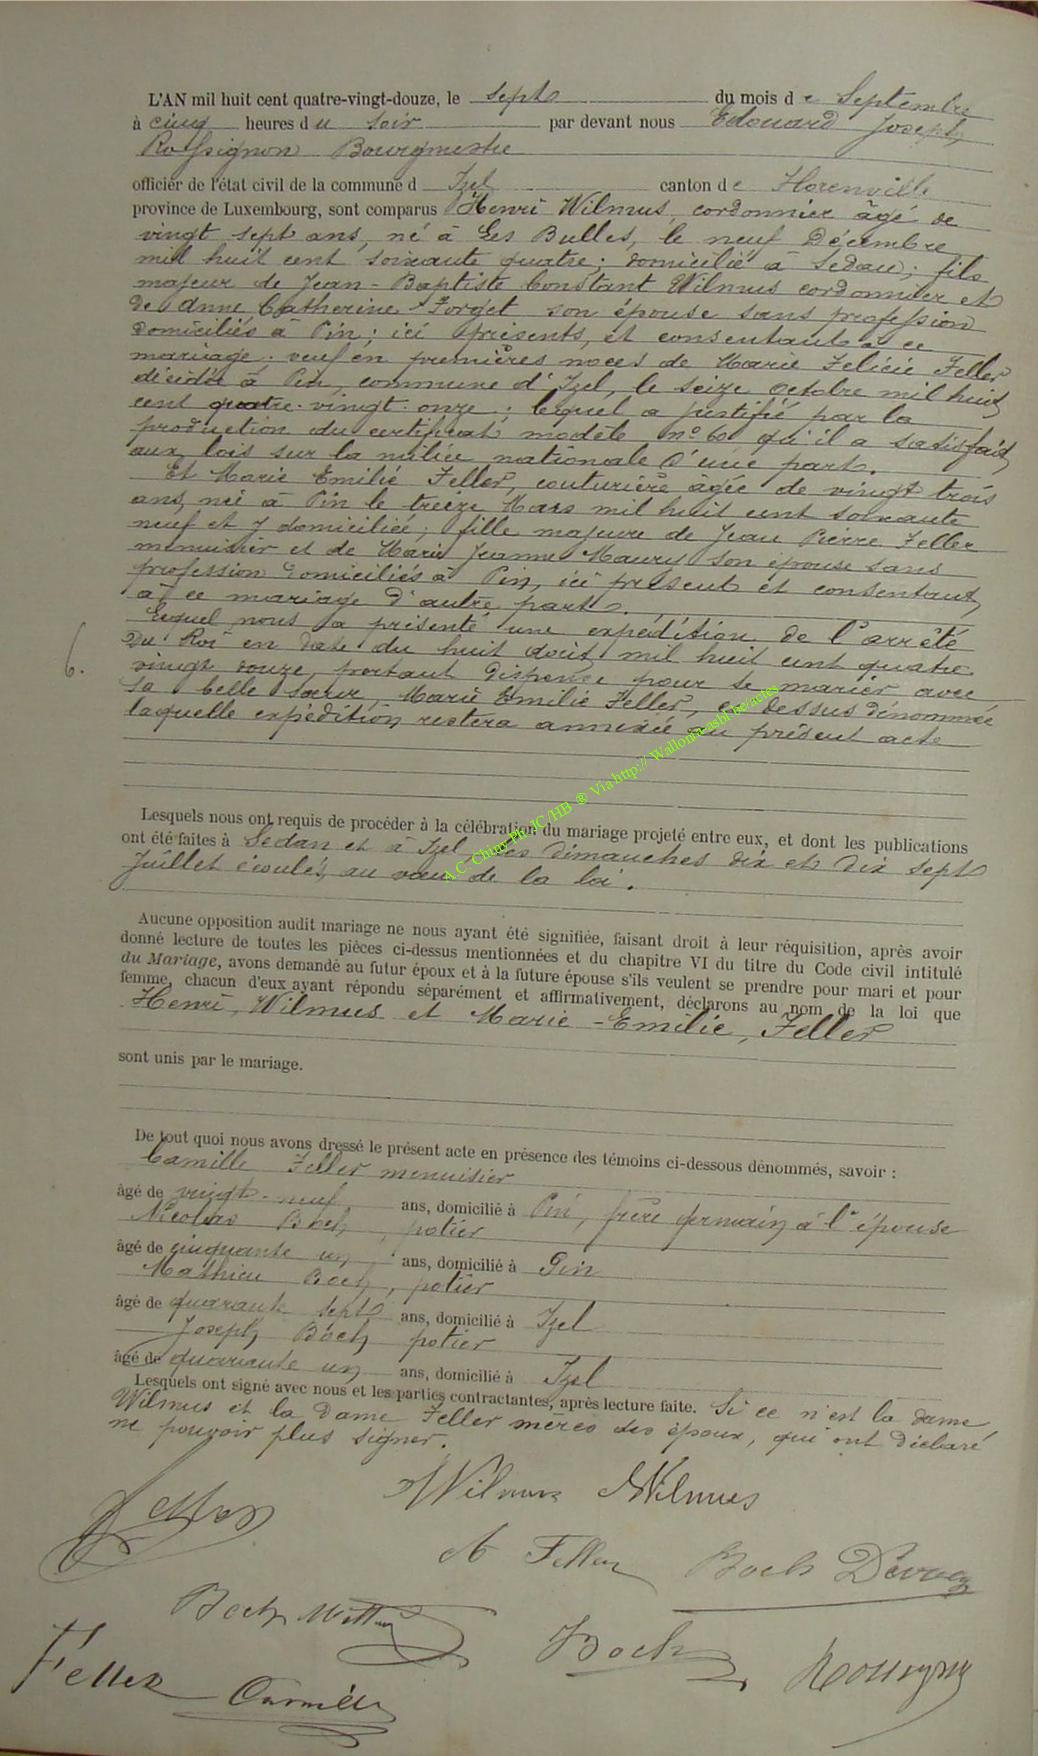 L'AN mil huit cent quatre-vingt-douze, le sept du mois de Septembre
à cinq heures du soir par devant nous Edouard Joseph
Rossignon Bourgmestre
officier de l'état civil de la commune d Izel canton de Florenville
province de Luxembourg, sont comparus Henri Wilmus, cordonnier âgé de
vingt sept ans, né à Les Bulles, le neuf Décembre
mil huit cent soixante quatre; domicilié à Sedan; fils
majeur de Jean-Baptiste Constant Wilmus cordonnier et
de Anne Catherine Forget son épouse sans profession
domiciliés à Pin; ici présents, et consentant à ce
mariage; veuf en premières noces de Marie Félicie Feller
décédée à Pin, commune d'Izel, le seize octobre mil huit
cent quatre-vingt-onze; lequel a justifié par la
production du certificat modèle n° 60 qu'il a satisfait
aux lois sur la milice nationale d'une part.
Et Marie Emilie Feller, couturière âgée de vingt trois
ans, née à Pin le treize Mars mil huit cent soixante
neuf et y domiciliée; fille majeure de Jean Pierre Feller
menuisier et de Marie Jeanne Maury son épouse sans
profession domiciliés à Pin, ici présent et consentant,
à ce mariage d'autre part.
Lequel nous a présenté une expédition de l'arrêté
6.
du Roi en date du huit août mil huit cent quatre
vingt douze, portant dispense pour se marier avec
sa belle sœur, Marie Emilie Feller, ci dessus dénommée
laquelle expédition restera annexée au présent acte
A.C. Chiny Ph. JC/HB ® Via http:// Wallonia-asbl.be/actes
Lesquels nous ont requis de procéder à la célébration du mariage projeté entre eux, et dont les publications
ont été faites à Sedan et à Izel les dimanches dix et dix sept
Juillet écoulés, au vœu de la loi.
Aucune opposition audit mariage ne nous ayant été signifiée, faisant droit à leur réquisition, après avoir
donné lecture de toutes les pièces ci-dessus mentionnées et du chapitre VI du titre du Code civil intitulé
du Mariage, avons demandé au futur époux et à la future épouse s'ils veulent se prendre pour mari et pour
femme, chacun d'eux ayant répondu séparément et affirmativement, déclarons au nom de la loi que
Henri, Wilmus et Marie-Emilie, Feller
sont unis par le mariage.
De tout quoi nous avons dressé le présent acte en présence des témoins ci-dessous dénommés, savoir :
Camille Feller menuisier
âgé de vingt-neuf ans, domicilié à Pin, frère germain à l'épouse
Nicolas Boch, potier
âgé de cinquante un ans, domicilié à Pin
Mathieu Boch, potier
âgé de quarante sept ans, domicilié à Izel
Joseph Boch potier
âgé de quarante un ans, domicilié à Izel
Lesquels ont signé avec nous et les parties contractantes, après lecture faite. Si ce n'est la dame
Wilmus et la Dame Feller mères des époux, qui ont déclaré
ne pouvoir plus signer.
Wilmus Wilmus
Feller
Feller Boch
Boch
Boch Rossignon
Feller Camille